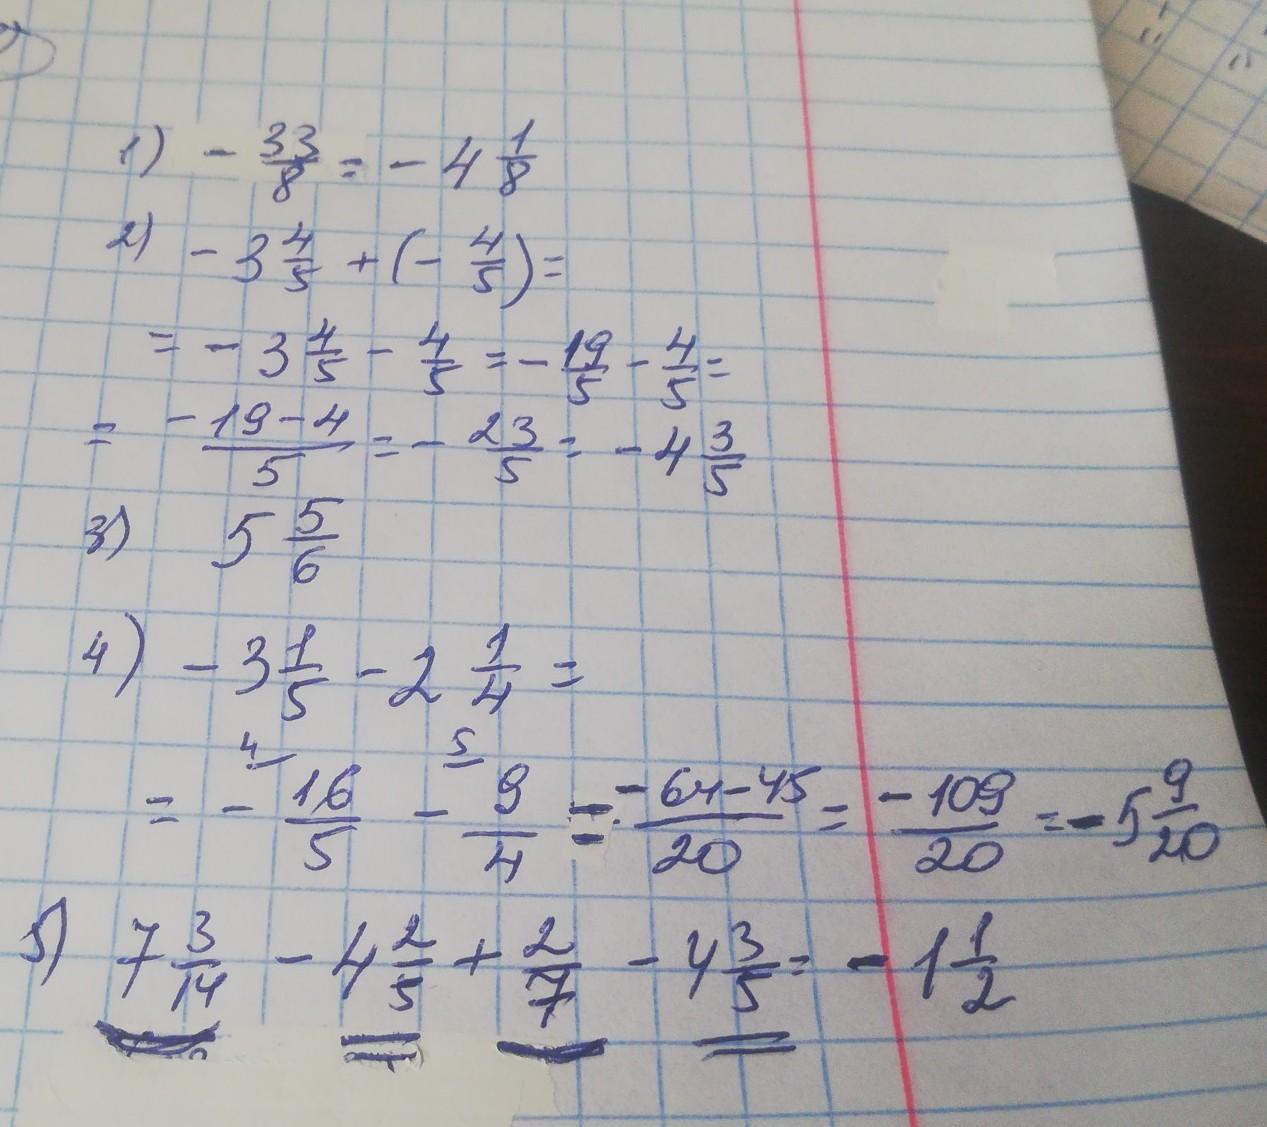 1) - 33/8 = - 4 1/8
2) - 3 4/5 + (- 4/5) =
= - 3 4/5 - 4/5 = - 19/5 - 4/5 =
= (-19-4)/5 = - 23/5 = - 4 3/5
3) 5 5/6
4) - 3 1/5 - 2 1/4 =
4 5
= - 16/5 - 9/4 = (-64-45)/20 = -109/20 = - 5 9/20
5) 7 3/14 - 4 2/5 + 2/7 - 4 3/5 = - 1 1/2